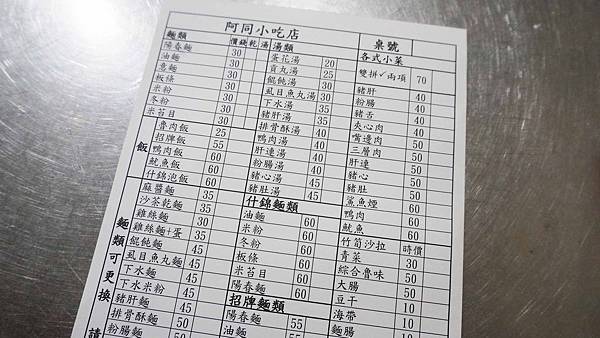 阿同小吃店
桌號
麵類 價錢 乾 湯
陽春麵 30
油麵 30
意麵 30
板條 30
米粉 30
冬粉 30
米苔目 30
飯
魯肉飯 25
招牌飯 55
鴨肉飯 60
魷魚飯 60
什錦泡飯 60
麵類可更換 請
麻醬麵 35
沙茶乾麵 35
雞絲麵 35
雞絲麵+蛋 45
餛飩麵 45
虱目魚丸麵 45
下水麵 45
下水米粉 45
豬肝麵 45
排骨酥麵 50
粉腸麵 50
湯類
蛋花湯 20
貢丸湯 25
餛飩湯 30
虱目魚丸湯 30
下水湯 35
豬肝湯 35
排骨酥湯 40
鴨肉湯 40
肝連湯 40
粉腸湯 40
豬心湯 45
豬肚湯 45
什錦麵類
油麵 60
米粉 60
冬粉 60
板條 60
米苔目 60
陽春麵 60
招牌麵類
陽春麵 55
油麵 55
各式小菜
雙拼✓兩項 70
豬肝 40
粉腸 40
豬舌 40
夾心肉 40
嘴邊肉 40
三層肉 40
肝連 40
豬心 50
豬肚 50
鯊魚煙 60
鴨肉 60
魷魚 60
竹筍沙拉 時價
青菜 30
綜合魯味 50
大腸 50
豆干 10
海帶 10
麵腸